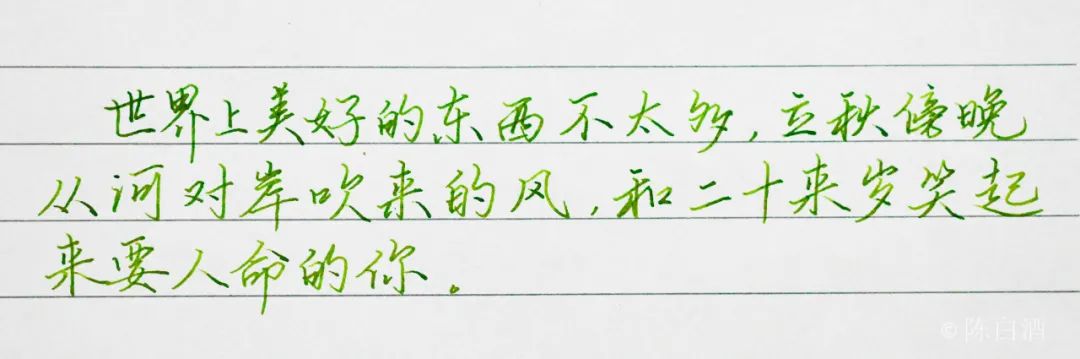 世界上美好的东西不太多,立秋傍晚
从河对岸吹来的风,和二十来岁笑起
来要人命的你。
©陈白酒